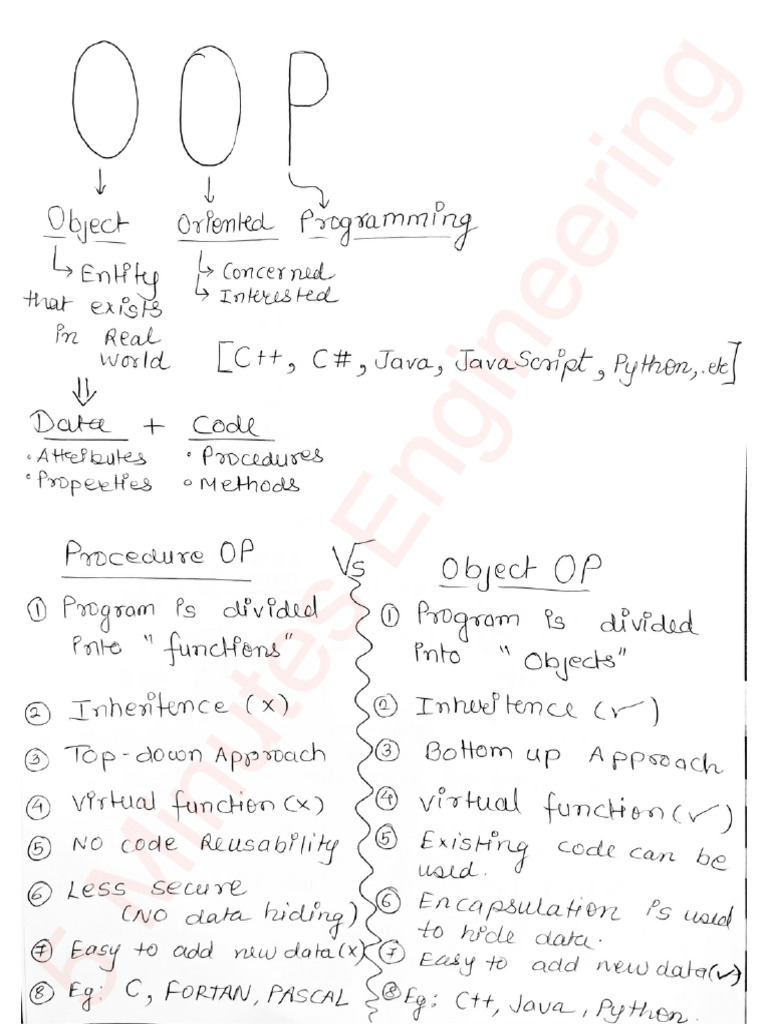 OOP
Object Oriented Programming
↳ Entity
that exists
in Real
World
↳ Concerned
↳ Interested
[C++, C#, Java, JavaScript, Python,.etc]
Data + Code
• Attributes
• Properties
• Procedures
• Methods
Procedure OP
Vs
Object OP
① Program is divided
into "functions"
② Inheritence (x)
③ Top-down Approach
④ Virtual function (x)
⑤ No code Reusability
⑥ Less secure
(No data hiding)
⑦ Easy to add new data (x)
⑧ Eg: C, FORTAN, PASCAL
① Program is divided
into "Objects"
② Inheritence (✓)
③ Bottom up Approach
④ Virtual function (✓)
⑤ Existing code can be
used.
⑥ Encapsulation is used
to hide data.
⑦ Easy to add new data (✓)
⑧ Eg: C++, Java, Python.
5 Minutes Engineering